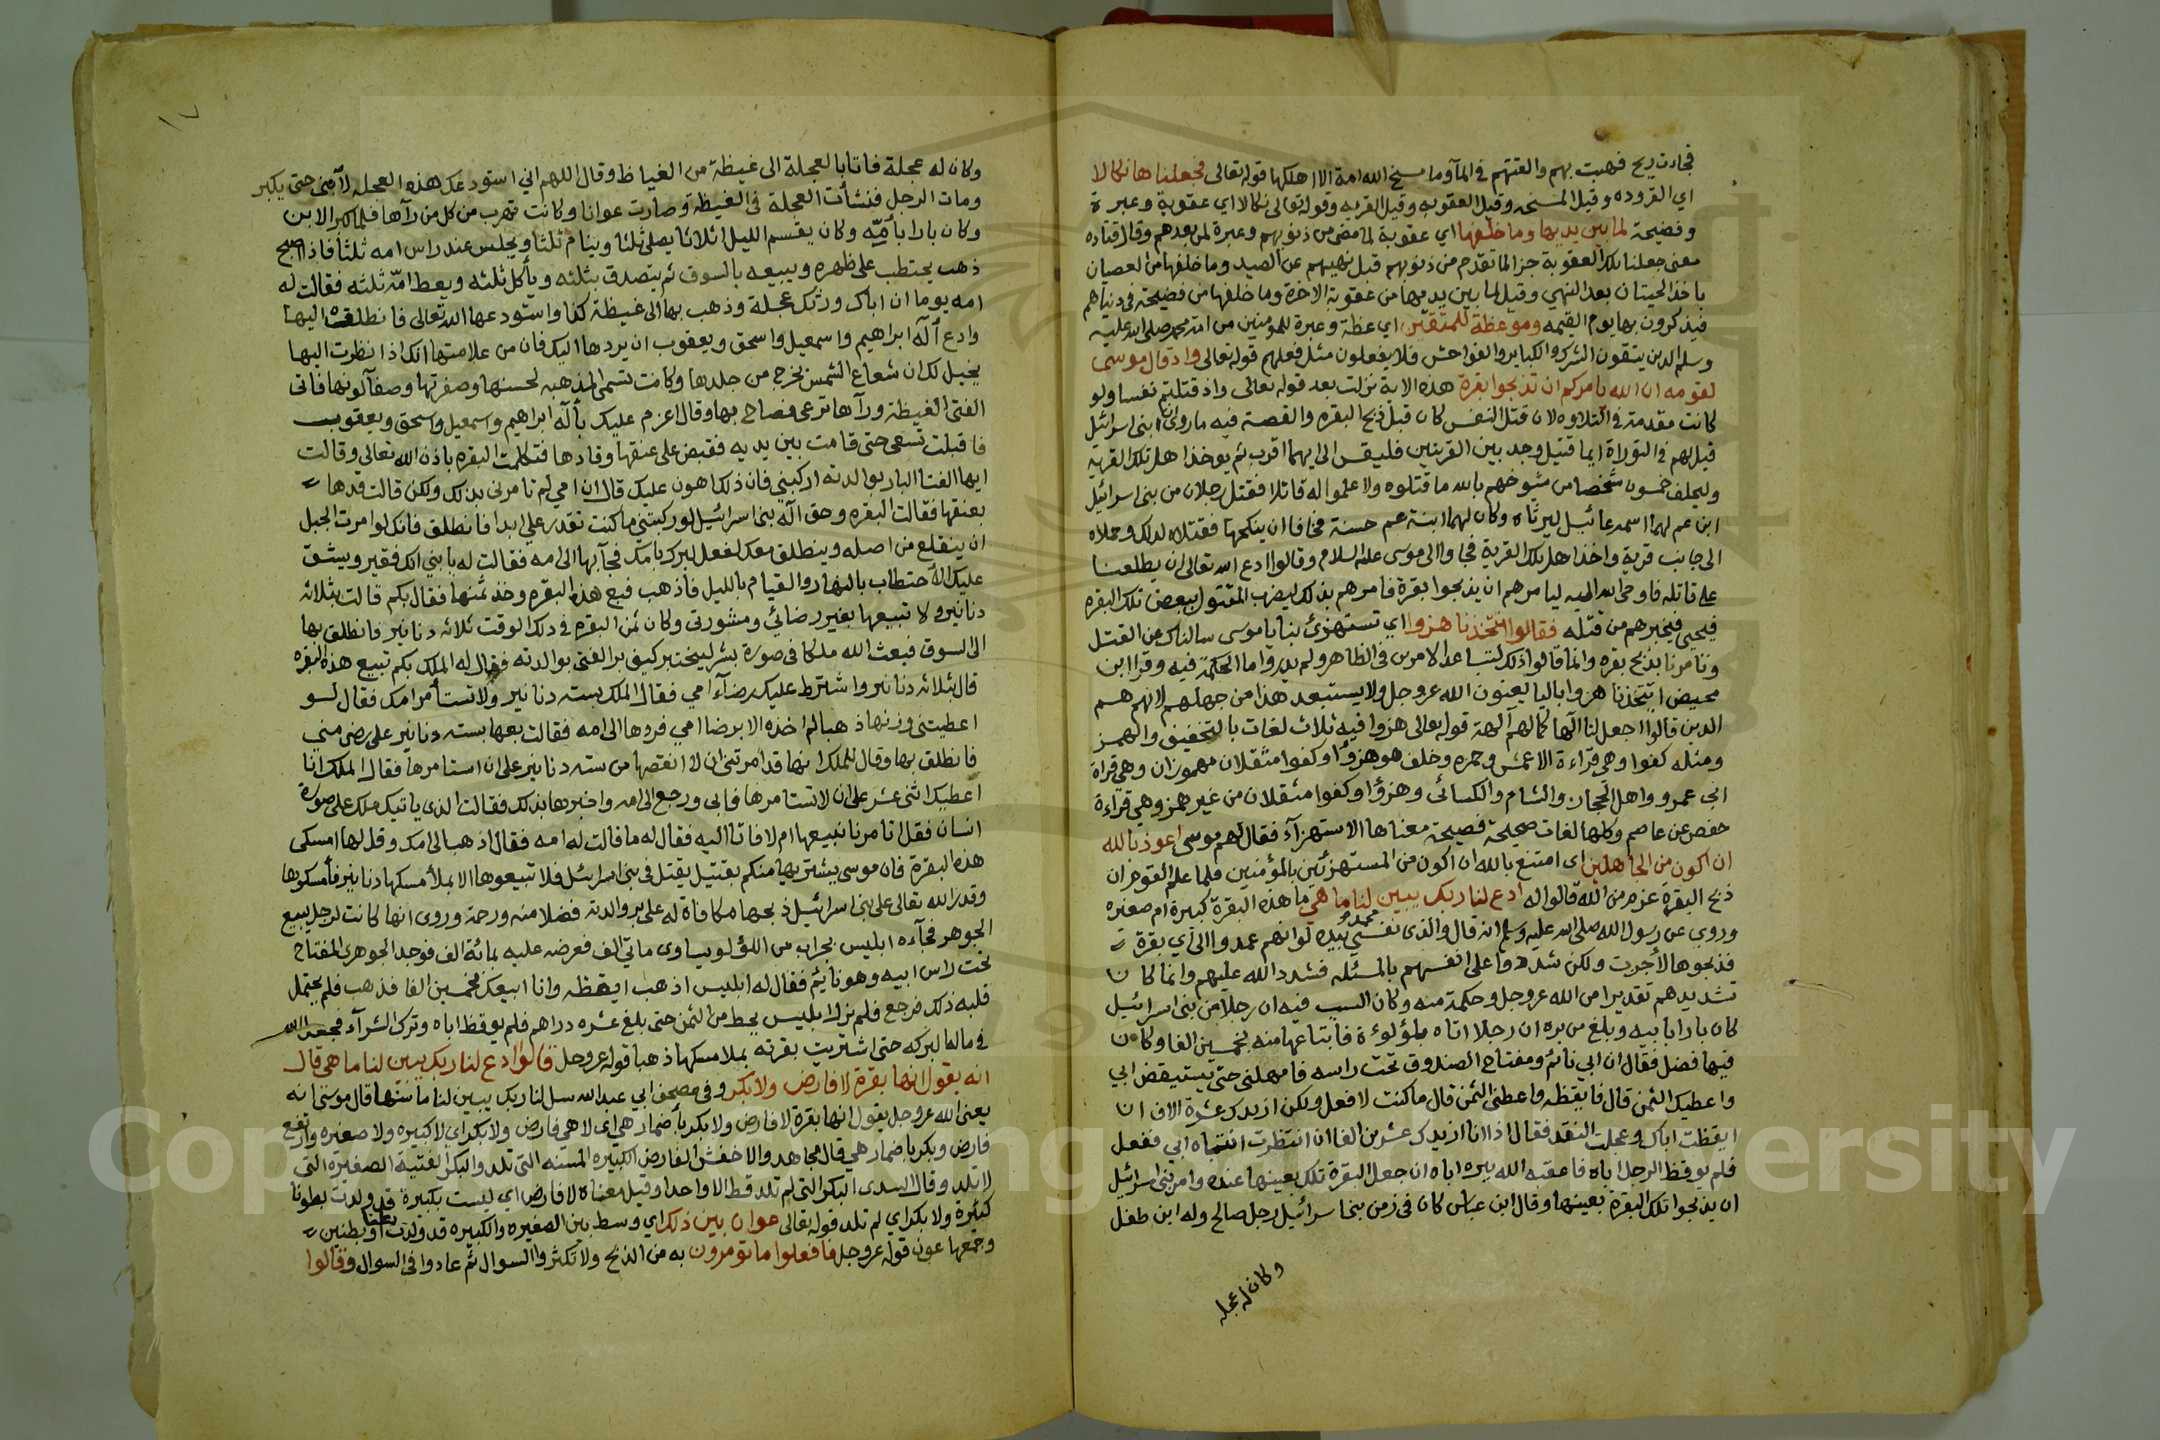 فجاءت ريح فهبت بهم والقتهم في المآ وما مسخ الله امة الا اهلكها قوله تعالى فجعلناها نكالا
اي القروده وقيل المسخه وقيل العقوبه وقيل القريه وقوله تعالى نكالا اي عقوبة وعبرة
وفضيحة لما بين يديها وما خلفها اي عقوبة لما مضى من ذنوبهم وعبرة لمن بعدهم وقال قتاده
معنى جعلنا تلك العقوبة جزا لما تقدم من ذنوبهم قبل نهيهم عن الصيد وما خلفها من العصيان
باخذ الحيتان بعد النهي وقيل لما بين يديها من عقوبة الاخرة وما خلفها من فضيحة في دنياهم
فيذكرون بها يوم القيمه وموعظة للمتقين اي عظة وعبرة للمؤمنين من امة محمد صلى الله عليه
وسلم الذين يتقون الشرك والكباير والفواحش فلا يفعلون مثل فعلهم قوله تعالى واذ قال موسى
لقومه ان الله يامركم ان تذبحوا بقرة هذه الاية نزلت بعد قوله تعالى واذ قتلتم نفسا ولو
كانت مقدمة في التلاوه لان قتل النفس كان قبل ذبح البقره والقصة فيه ما روى ان بنى اسرائيل
قيل لهم في التوراة ايما قتيل وجد بين القريتين فليقس الى ايهما اقرب ثم يوخذ اهل تلك القرية
وليحلف خمسون شخصا من شيوخهم بالله ما قتلوه ولا علموا له قاتلا فقتل رجلان من بنى اسرائيل
ابن عم لهما اسمه عائيل ليرثاه وكان لهما ابنة عم حسنة فخافا ان ينكحها فقتلاه لذلك وحملاه
الى جانب قرية واخذ اهل تلك القرية فجاوا الى موسى عليه السلام وقالوا ادع الله تعالى ان يطلعنا
على قاتله فاوحى الله اليه ليامرهم ان يذبحوا بقرة فامرهم بذلك ليضرب المقتول ببعض تلك البقره
فيحيى فيخبرهم من قتله فقالوا اتتخذنا هزوا اي تستهزئ بنا يا موسى سالناك عن القتل
وتامرنا بذبح بقره وانما قالوا ذلك لتباعد الامرين في الظاهر ولم يدروا ما الحكمة فيه وقرا ابن
محيض ايتخذنا هزوا باليا يعنون الله عز وجل ولا يستبعد هذا من جهلهم لانهم هم
الذين قالوا اجعل لنا الها كما لهم آلهة قوله تعالى هزوا فيه ثلاث لغات بالتخفيف والهمز
ومثله كفوا وهي قراءة الاعمش وحمزه وخلف هو هزؤا وكفوا مثقلان مهموزان وهي قراة
ابي عمرو واهل الحجاز والشام والكسائى وهزوا وكفوا مثقلان من غير همز وهي قراءة
حفص عن عاصم وكلها لغات صحيحة فصيحة معناها الاستهزآء فقال لهم موسى اعوذ بالله
ان اكون من الجاهلين اى امتنع بالله ان اكون من المستهزئين بالمؤمنين فلما علم القوم ان
ذبح البقرة عزم من الله قالوا له ادع لنا ربك يبين لنا ما هي ما هذه البقرة كبيرة ام صغيره
وروى عن رسول الله صلى الله عليه وسلم انه قال والذى نفس محمد بيده لو انهم عمدوا الى اي بقرة
فذبحوها لأجزت ولكن شددوا على انفسهم بالمسئله فشدد الله عليهم وانما كان
تشديدهم تقديرا من الله عز وجل وحكمة منه وكان السبب فيه ان رجلا من بنى اسرائيل
كان بارا بابيه وبلغ من بره ان رجلا اتاه بلؤلؤة فابتاعها منه بخمسين الفا وكان
فيها فضل فقال ان ابي نائم ومفتاح الصندوق تحت راسه فامهلنى حتى يستيقض ابي
واعطيك الثمن قال فايقظه واعطنى الثمن قال ما كنت لافعل ولكن ازيدك عشرة الاف ان
ايقظت اباك وعجلت النقد فقال اذا انا ازيدك عشرين الفا ان انتظرت انتباه ابى ففعل
فلم يوقظ الرجل اباه فاعقبه الله ببره اباه ان جعل البقرة تلك بعينها عنده وامر بنى اسرائيل
ان يذبحوا تلك البقرة بعينها وقال ابن عباس كان في زمن بنى اسرائيل رجل صالح وله ابن طفل
وكان له عجله
١٧
وكان له عجلة فاتا بالعجلة الى غيظة من الغياظ وقال اللهم اني استودعك هذه العجله لأبنى حتى يكبر
ومات الرجل فنشأت العجلة في الغيظة وصارت عوانا وكانت تهرب من كل من رآها فلما كبر الابن
وكان بارا بأمّه وكان يقسم الليل اثلاثا يصلي ثلثا وينام ثلثا ويجلس عند راس امه ثلثا فاذا اصبح
ذهب يحتطب على ظهره ويبيعه بالسوق ثم يتصدق بثلثه ويأكل ثلثه ويعط امّه ثلثه فقالت له
امه يوما ان اباك ورثك عجلة وذهب بها الى غيظة كذا واستودعها الله تعالى فانطلق اليها
وادع آله ابراهيم واسمعيل واسحق ويعقوب ان يردها اليك فان من علامتها انك اذا نظرت اليها
يخيل لك ان شعاع الشمس يخرج من جلدها وكانت تسمى المذهبه لحسنها وصفرتها وصفآ لونها فاتى
الفتى الغيظة ورآها ترعى فصاح بها وقال اعزم عليك بآله ابراهيم واسمعيل واسحق ويعقوب
فاقبلت تسعى حتى قامت بين يديه فقبض على عنقها وقادها فتكلمت البقره باذن الله تعالى وقالت
ايها الفتا البار بوالدته اركبنى فان ذلك اهون عليك قال ان امي لم تامرنى بذلك ولكن قالت قدها
بعنقها فقالت البقره وحق اله بنى اسرائيل لو ركبتنى ما كنت تقدر علي ابدا فانطلق فانك لو امرت الجبل
ان ينقلع من اصله وينطلق معك لفعل لبرك بامك فجآ بها الى امه فقالت له يا بني انك فقير ويشق
عليك الأحتطاب بالنهار والقيام بالليل فاذهب فبع هذه البقره وخذ ثمنها فقال بكم قالت بثلاثه
دنانير ولا تبيعها بغير رضائي ومشورتى وكان ثمن البقره في ذلك الوقت ثلاثه دنانير فانطلق بها
الى السوق فبعث الله ملكا في صورة بشر ليختبر كيف بر الفتى بوالدته فقال له الملك بكم تبيع هذه البقره
قال بثلاثه دنانير واشترط عليك رضآء امي فقال الملك بسته دنانير ولا تستأمر امك فقال لو
اعطيتنى وزنها ذهبا لم اخذه الا برضا امي فردها الى امه فقالت بعها بسته دنانير على رضى منى
فانطلق بها وقال للملك انها قد امرتنى ان لا انقصها من سته دنانير على ان استامرها فقال الملك انا
اعطيك اثنى عشر على ان لا تستامرها فابى ورجع الى امه واخبرها بذلك فقالت الذى ياتيك ملك على صورة
انسان فقل اتامرنا نبيعها ام لا فاتا اليه فقال له ما قالت له امه فقال اذهب الى امك وقل لها امسكى
هذه البقرة فان موسى يشتريها منكم بقتيل يقتل في بنى اسرائيل فلا تبيعوها الا بملأ مسكها دنانير فأمسكوها
وقدر الله تعالى على بنى اسرائيل ذبحها مكافاة له على بر والدته فضلا منه ورحمة وروى انها كانت لرجل يبيع
الجوهر فجآءه ابليس بجراب من اللؤلو يساوى مائتى الف فعرضه عليه بمائة الف فوجد الجوهرى المفتاح
تحت راس ابيه وهو نايم فقال له ابليس اذهب ايقظه وانا ابيعك بخمسين الفا فذهب فلم يحتمل
قلبه ذلك فرجع فلم يزل ابليس يحط من الثمن حتى بلغ عشره دراهم فلم يوقظ اباه وترك الشرآء فجعل الله
في ماله البركه حتى اشتريت بقرته بملا مسكها ذهبا قوله عز وجل قالوا ادع لنا ربك يبين لنا ما هي قال
انه يقول انها بقرة لا فارض ولا بكر وفي مصحف ابي عبد الله سل لنا ربك يبين لنا ما سنها قال موسى انه
يعنى الله عز وجل يقول انها بقرة لا فارض ولا بكر بأضمار هي اى لا هي فارض ولا بكر اى لا كبيره ولا صغيره وارتفع
فارض وبكر باضمار هي قال مجاهد والاخفش الفارض الكبيره المسنه التى تلد والبكر الفتية الصغيرة التى
لا تلد وقال السدى البكر التى لم تلد قط الا واحدا وقيل معناه لا فارض اي ليست بكبيرة قد ولدت بطونا
كثيرة ولا بكر اي لم تلد قوله تعالى عوان بين ذلك اي وسط بين الصغيره والكبيره قد ولدت بطنا او بطنين
وجمعها عون قوله عز وجل فافعلوا ما تومرون به من الذبح ولا تكثروا السوال ثم عادوا في السوال وقالوا
University